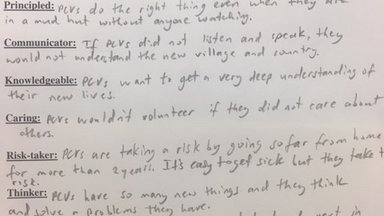 Principled: PCVs do the right thing even when they are
in a mud hut without anyone watching.
Communicator: If PCVs did not listen and speak, they
would not understand the new village and country.
Knowledgeable: PCVs want to get a very deep understanding of
their new lives.
Caring: PCVs wouldn't volunteer if they did not care about
others.
Risk-taker: PCVs are taking a risk by going so far from home
for more than 2 years. It's easy to get sick but they take the
risk.
Thinker: PCVs have so many new things and they think
and solve a problems they have.